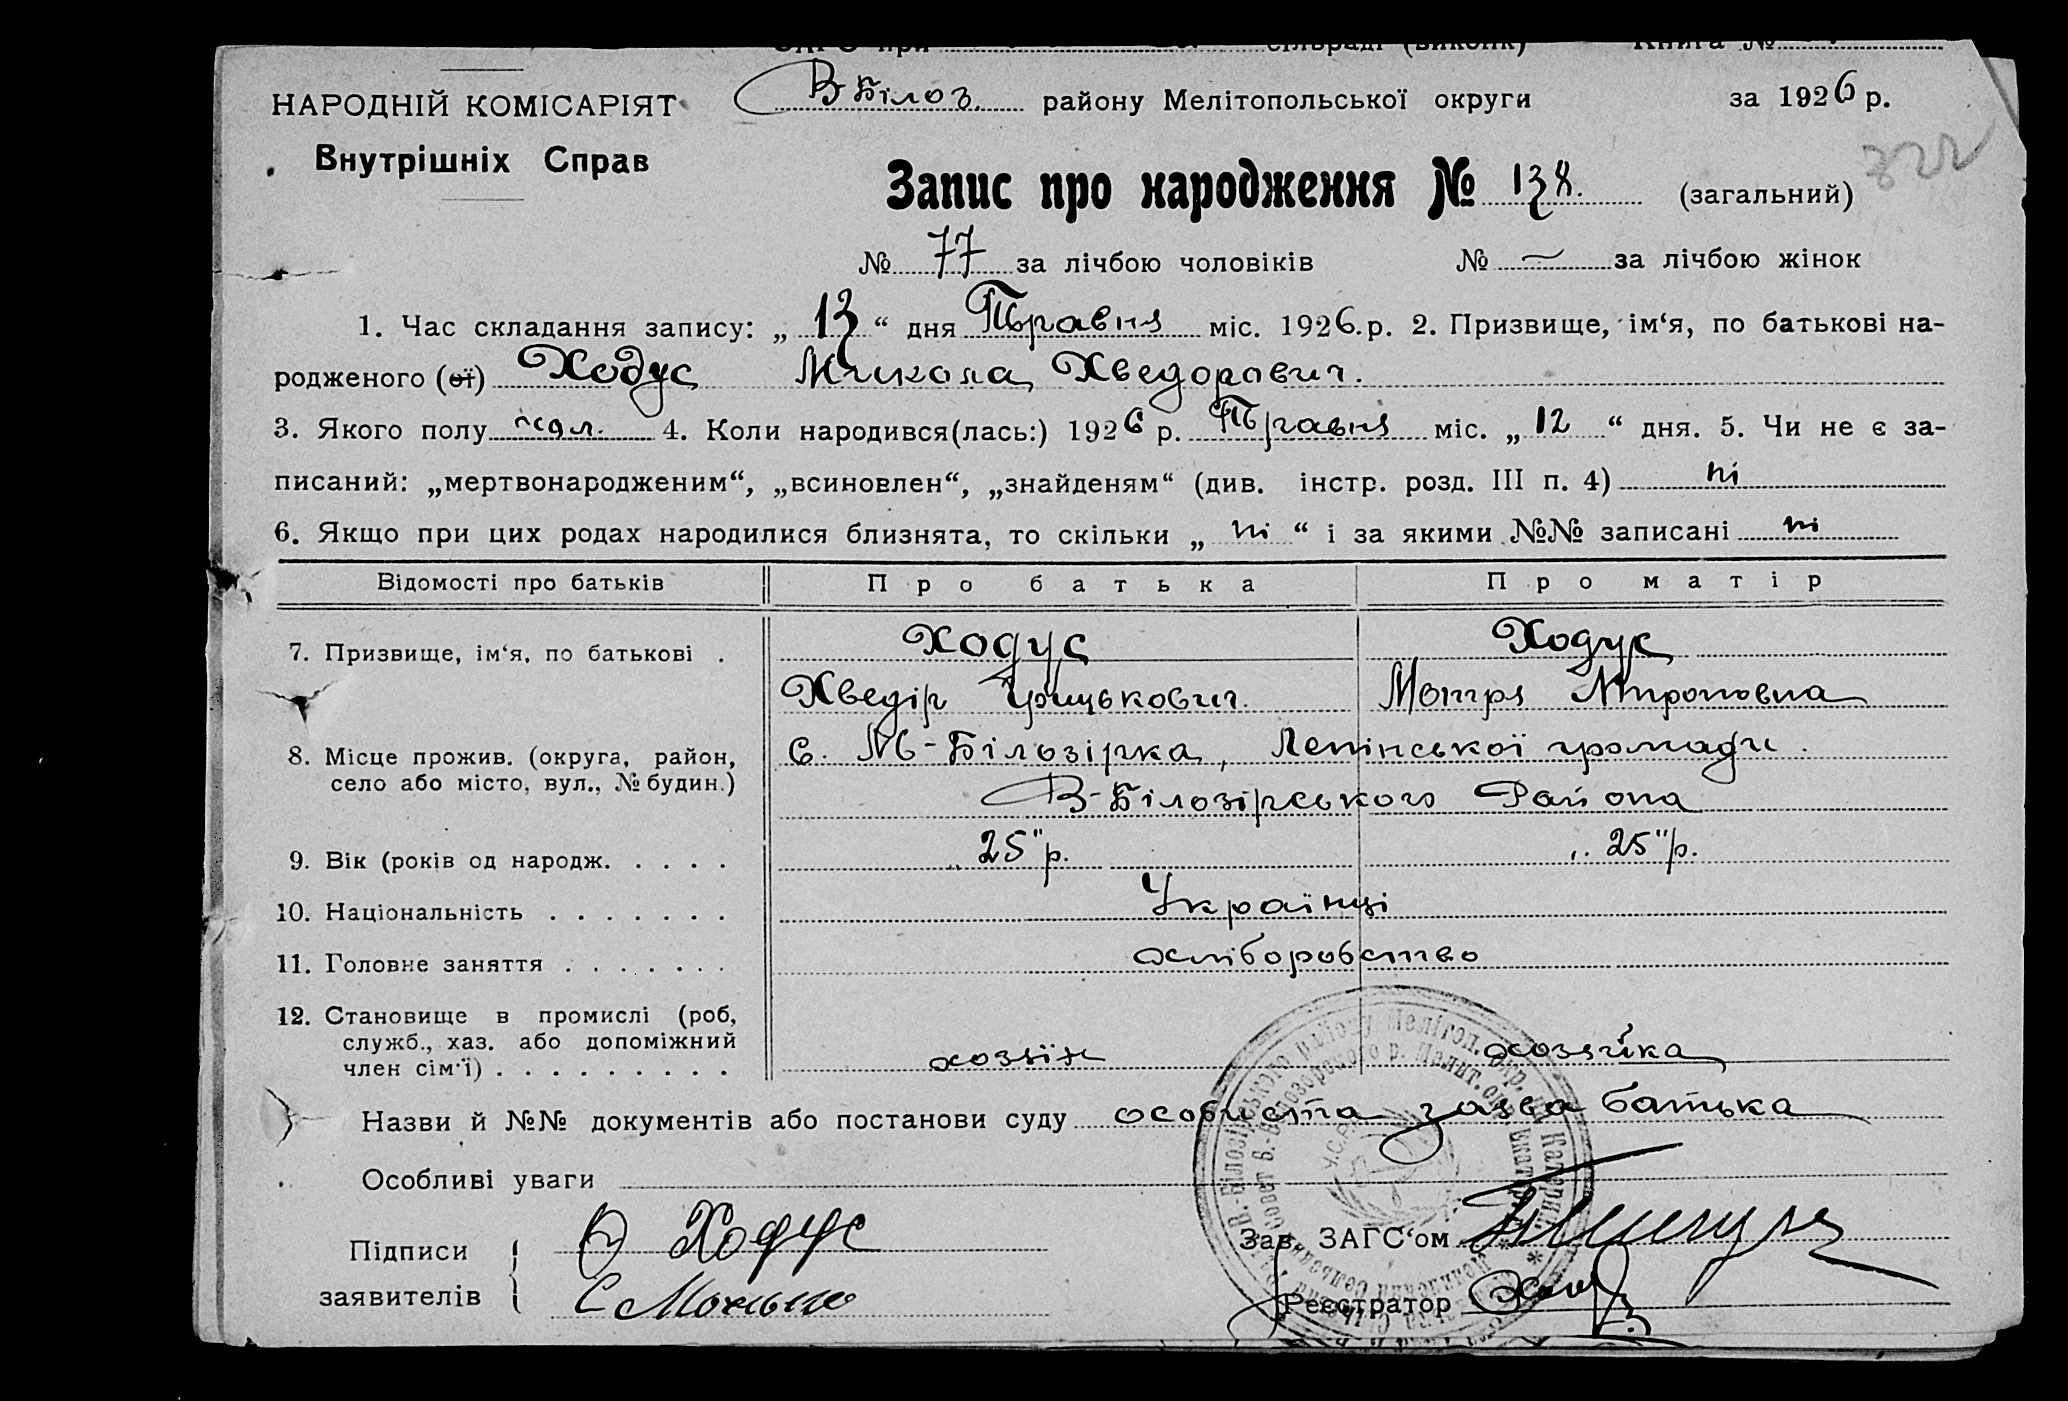 ЗАГС при сільраді (виконк) Книга №
НАРОДНІЙ КОМІСАРІЯТ
В Білоз. району Мелітопольської округи за 1926 р.
Внутрішніх Справ
Запис про народження № 138. (загальний)
№ 77 за лічбою чоловіків № — за лічбою жінок
1. Час складання запису: „ 13 “ дня Травня міс. 1926.р. 2. Призвище, ім‘я, по батькові на-
родженого (ої) Ходус Микола Хведорович.
3. Якого полу 4. Коли народився(лась:) 1926 р. Травня міс. „ 12 “ дня. 5. Чи не є за-
писаний: „мертвонародженим“, „всиновлен“, „знайденям“ (див. інстр. розд. III п. 4) ні
6. Якщо при цих родах народилися близнята, то скільки „ ні “ і за якими №№ записані ні
Відомості про батьків Про батька Про матір
7. Призвище, ім‘я, по батькові . Ходус Ходус
Хведір Грицькович. Мотря Мироновна
8. Місце прожив. (округа, район, с. М-Білозірка, Ленінської громади.
село або місто, вул., № будин.)
В-Білозірського Района
9. Вік (років од народж. . . . . „25“р. „25“р.
10. Національність . . . . . . . Українці
11. Головне заняття . . . . . . . хліборобство
12. Становище в промислі (роб,
служб., хаз. або допоміжний
член сім‘ї) . . . . . . . . . хозяїн хозяйка
Назви й №№ документів або постанови суду особиста заява батька
Особливі уваги
Підписи Ходус Зав. ЗАГС‘ом
заявителів Реєстратор